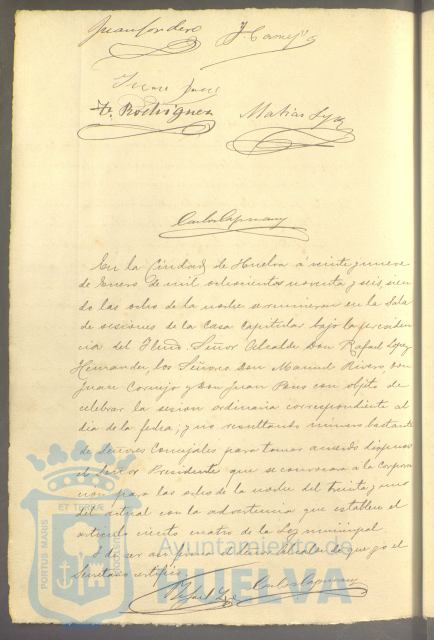 Juan Cordero J. Cornejo
Juan
F. Rodriguez Matias
En la Ciudad de Huelva á veinte y nueve
de Enero de mil ochocientos noventa y seis, sien
do las ocho de la noche se reunieron en la Sala
de sesiones de la Casa Capitular bajo la presiden
cia del Iltmo Señor Alcalde Don Rafael Lopez
Hernandez, los Señores Don Manuel Rivero, Don
Juan Cornejo y Don Juan Pons con objeto de
celebrar la sesion ordinaria correspondiente al
dia de la fecha; y no resultando número bastante
de Señores Concejales para tomar acuerdo dispuso
el Señor Presidente que se convocara á la Corpora
cion para las ocho de la noche del treinta y uno
del actual con la advertencia que establece el
articulo ciento cuatro de la Ley municipal
de que yo el
Secretario certifico
PORTUS MARIS ET TERRAE CUSTODIA
Ayuntamiento de
HUELVA